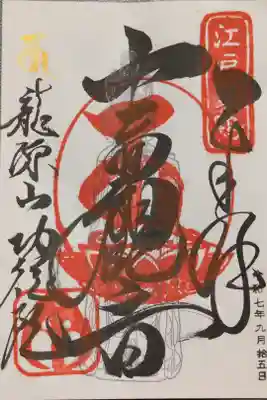 奉拝
令和七年九月拾五日
十一面観世音
龍源山功徳院